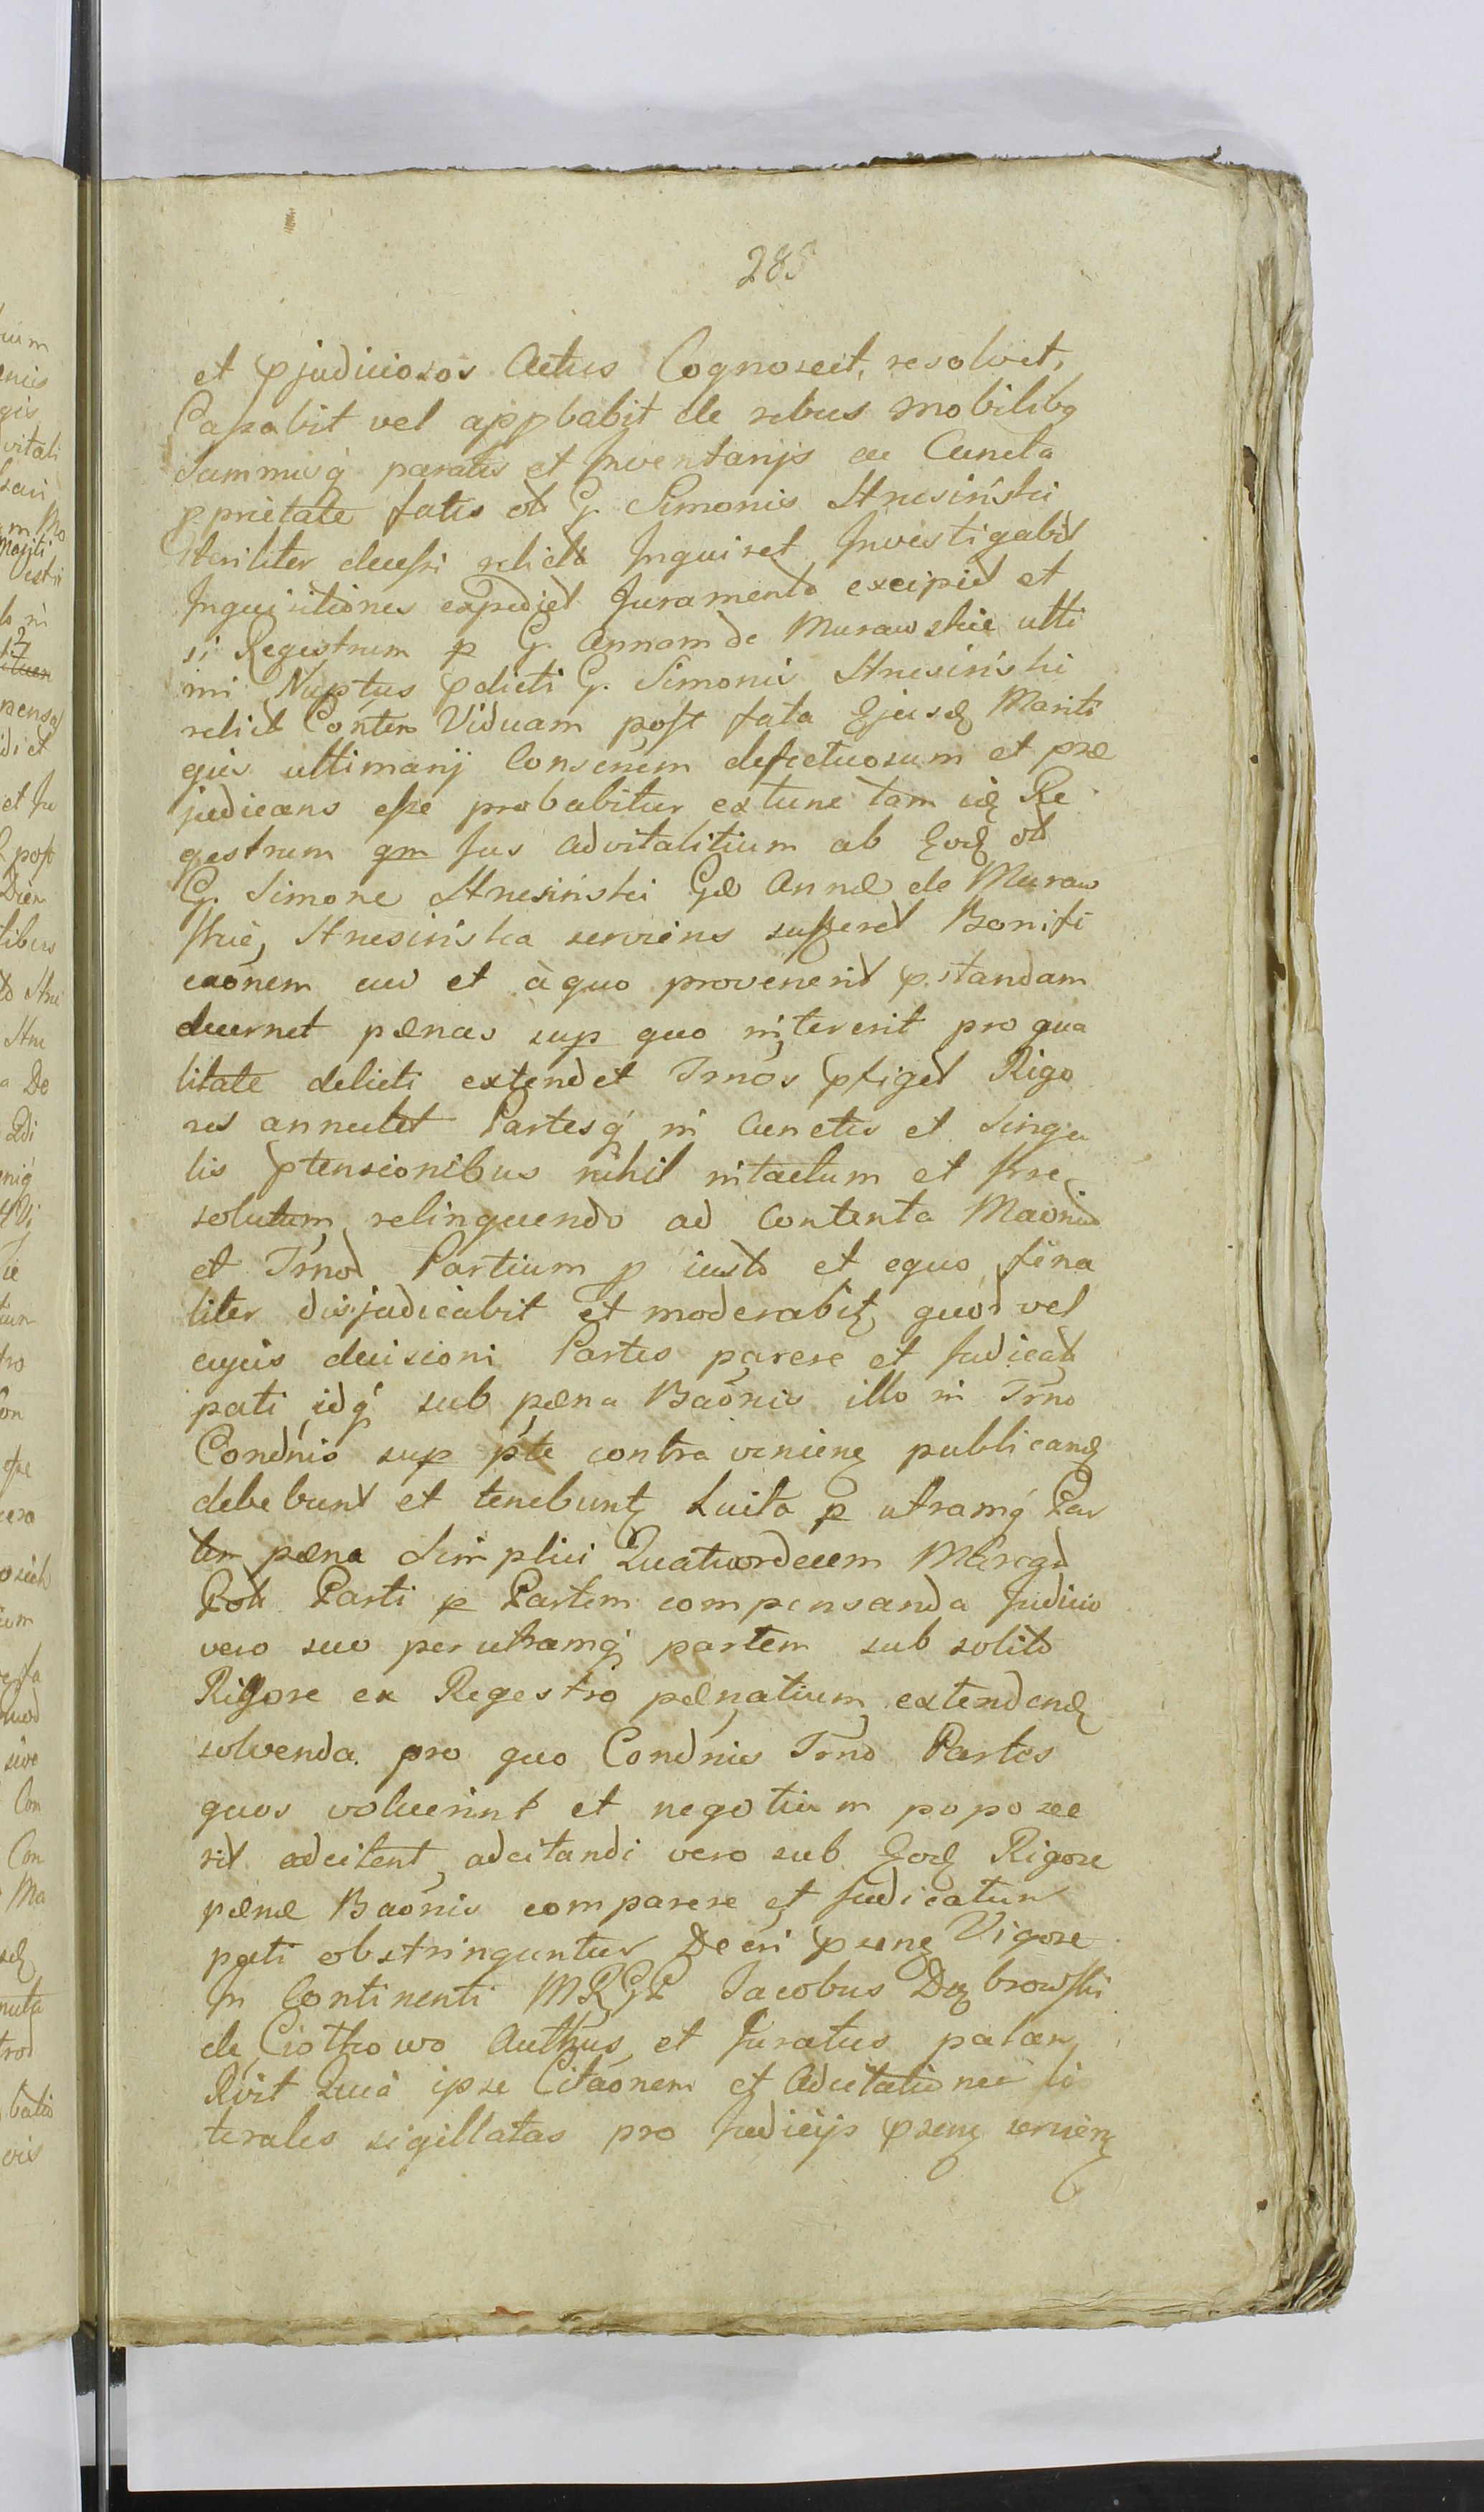 285
et pjudiciosos Actus Cognoscet, resolvet,
Cassabit vel appbabit de rebus mobilibq
Summisq́ paratis et Inventarijs ac Cuncta
pprietate fatis ol G. Simonis Strzesiński
steriliter decessi relicta Inquiret Investigabit
Inquisitiones expediet Juramento excipiet et
si Regestrum p G. Annam de Murawskie ulti
mi Nuptus pdicti G. Simonis Strzesiński
relict Conten Viduam post fata Ejusd Mariti
ejus ultimarij Consenem defectuosum et præ
judicans esse probabitur extunc tam id Re
gestrum qm Jus advitalitium ab Eod ol
G. Simone Strzesiński Gæ Annæ de Muraw
skie, Strzesińska serviens Bonifi
caónem cui et à quo provenerit pstandam
decernet pænas sup quo intererit pro qua
litate delicti extendet Trnos pfiget Rigo
res annectet Partesq́ in Cunctis et Singu
lis ptensionibus nihil intactum et Irre
solutum relinquendo ad Contenta
et Trnor Partium p iusto et equo fina
liter disjudicabit et moderabit quod vel
cujus decisioni Partes parere et Judicat
pati idq́ sub pæna Baónis illo in Trno
Condnis sup pte contra venienę publicand
debebunt et tenebunt Luita p utramq́ Par
tem pæna Simplici Quatuordecem Marcar
Pol Parti p Partem compensanda Judicio
vero suo per utramq́ partem sub solito
Rigore ex Regestro pænalium extendend
solvenda. pro quo Condnis Trno Partes
quos voluerint et negotium poposce
rit adcitent, adcitandi vero sub Eod Rigore
pænæ Baónis comparere et Judicatum
pati obstringuntur Decri psenę Vigore
In Continenti MRGP Jacobus Dąbrowski
de Ciołkowo Authus et Juratus palam
Rvit Quia ipse Citaónem et Adcitationes li
terales sigillatas pro Judicijs psenę servien